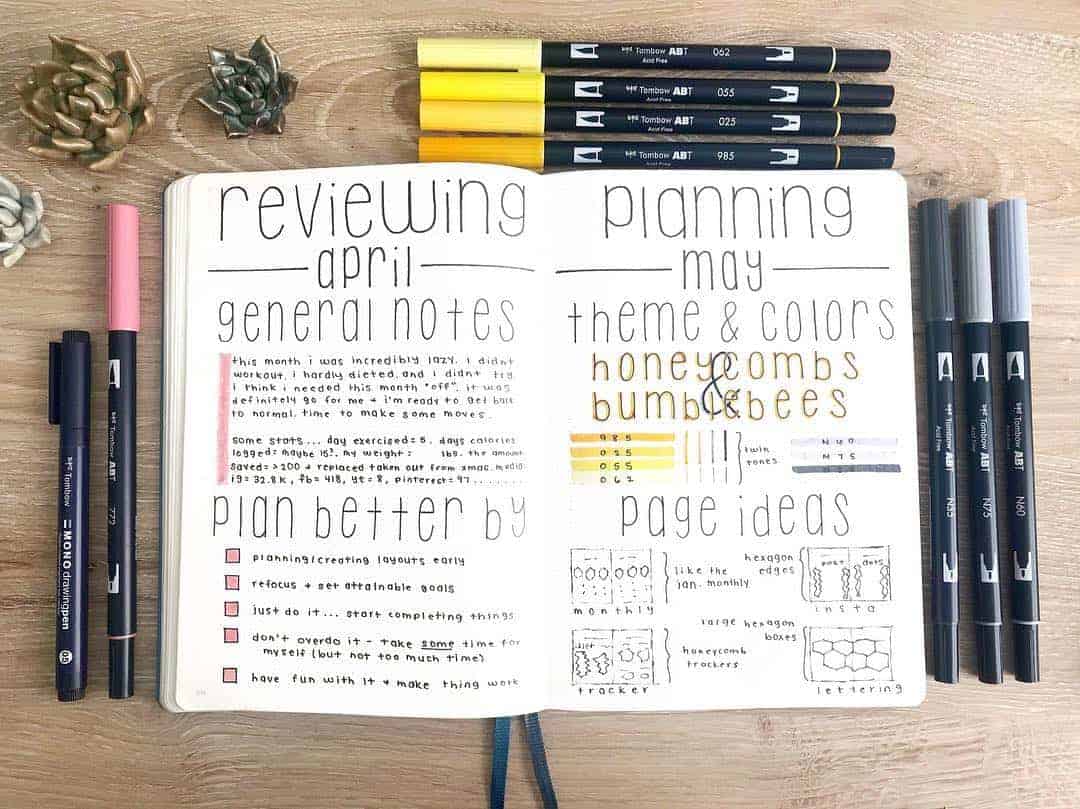 Tombow ABT 062
Acid Free
Tombow ABT 055
Acid Free
Tombow ABT 025
Acid Free
Tombow ABT 985
reviewing
april
general notes
this month i was incredibly lazy. i didnt
workout, i hardly dieted, and i didnt try.
i think i needed this month "off". it was
definitely go for me + i'm ready to get back
to normal. time to make some moves.
some stats... day exercised = 5, days calories
logged = maybe 15?, my weight = lbs. the amount
saved = >200 + replaced taken out from xmas. media
ig = 32.8k, fb = 418, yt = 8, pinterest = 97........
plan better by
planning/creating layouts early
refocus + set attainable goals
just do it... start completing things
don't overdo it - take some time for
myself (but not too much time)
have fun with it + make thing work
planning
may
theme & colors
honeycombs
&
bumblebees
985
025
055
062
twin
tones
N60
N75
N35
page ideas
monthly
like the
jan. monthly
hexagon
edges
post
dots
insta
tracker
honeycomb
trackers
large hexagon
boxes
lettering
Tombow MONO drawing pen
Tombow ABT
772
Tombow ABT
Acid Free
N35
Tombow ABT
Acid Free
N75
Tombow ABT
Acid Free
N60